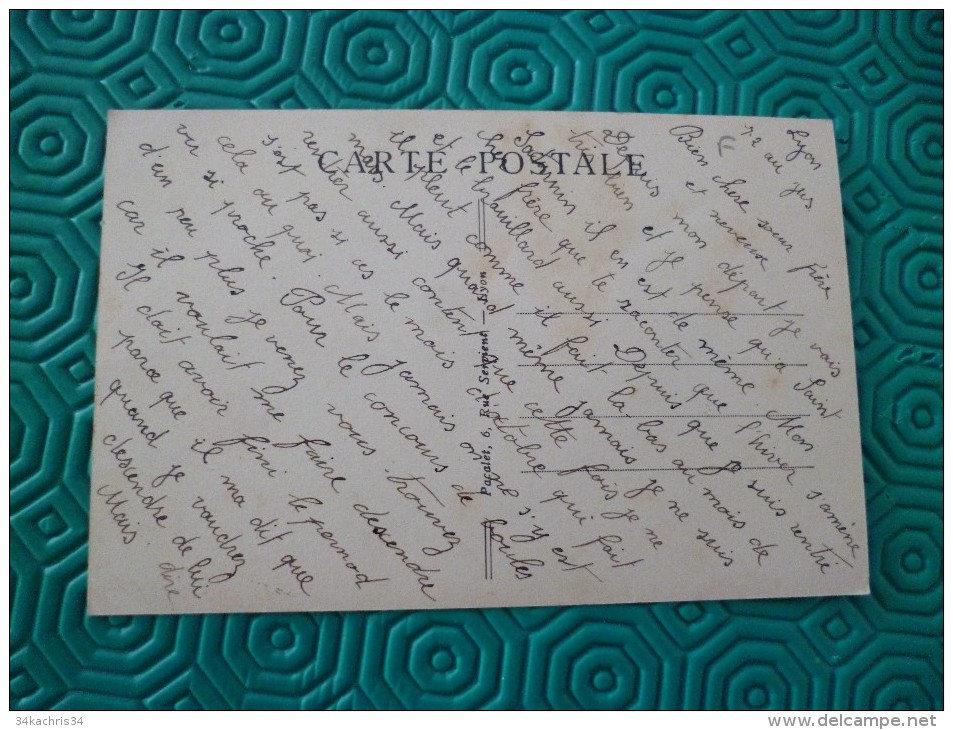 CARTE POSTALE
Pacalet, 6, Rue Servient — Lyon
Lyon
72 au jus
Bien chère sœur frère
et neveux
Depuis mon départ je vais
très bien et je pense qu'à Saint
Saturnin il en est de même. Mon
cher frère que te raconter que l'hiver s'amène
et le brouillard aussi. Depuis que je suis rentré
il pleut comme il fait la bas au mois de
mars. Mais quand même jamais je ne suis
rentrer aussi content que cette fois je ne
s'est pas si ces le mois d'octobre qui fait
cela ou quoi. Mais jamais on ne s'y est
vu si proche. Pour le concours de boules
d'un peu plus je venez vous trouvez
car il voulait me faire descendre
Il doit avoir fini le pernod
parce que il ma dit que
quand je vaudrez
descendre de lui
dire
Mais
34kachris34
www.delcampe.net